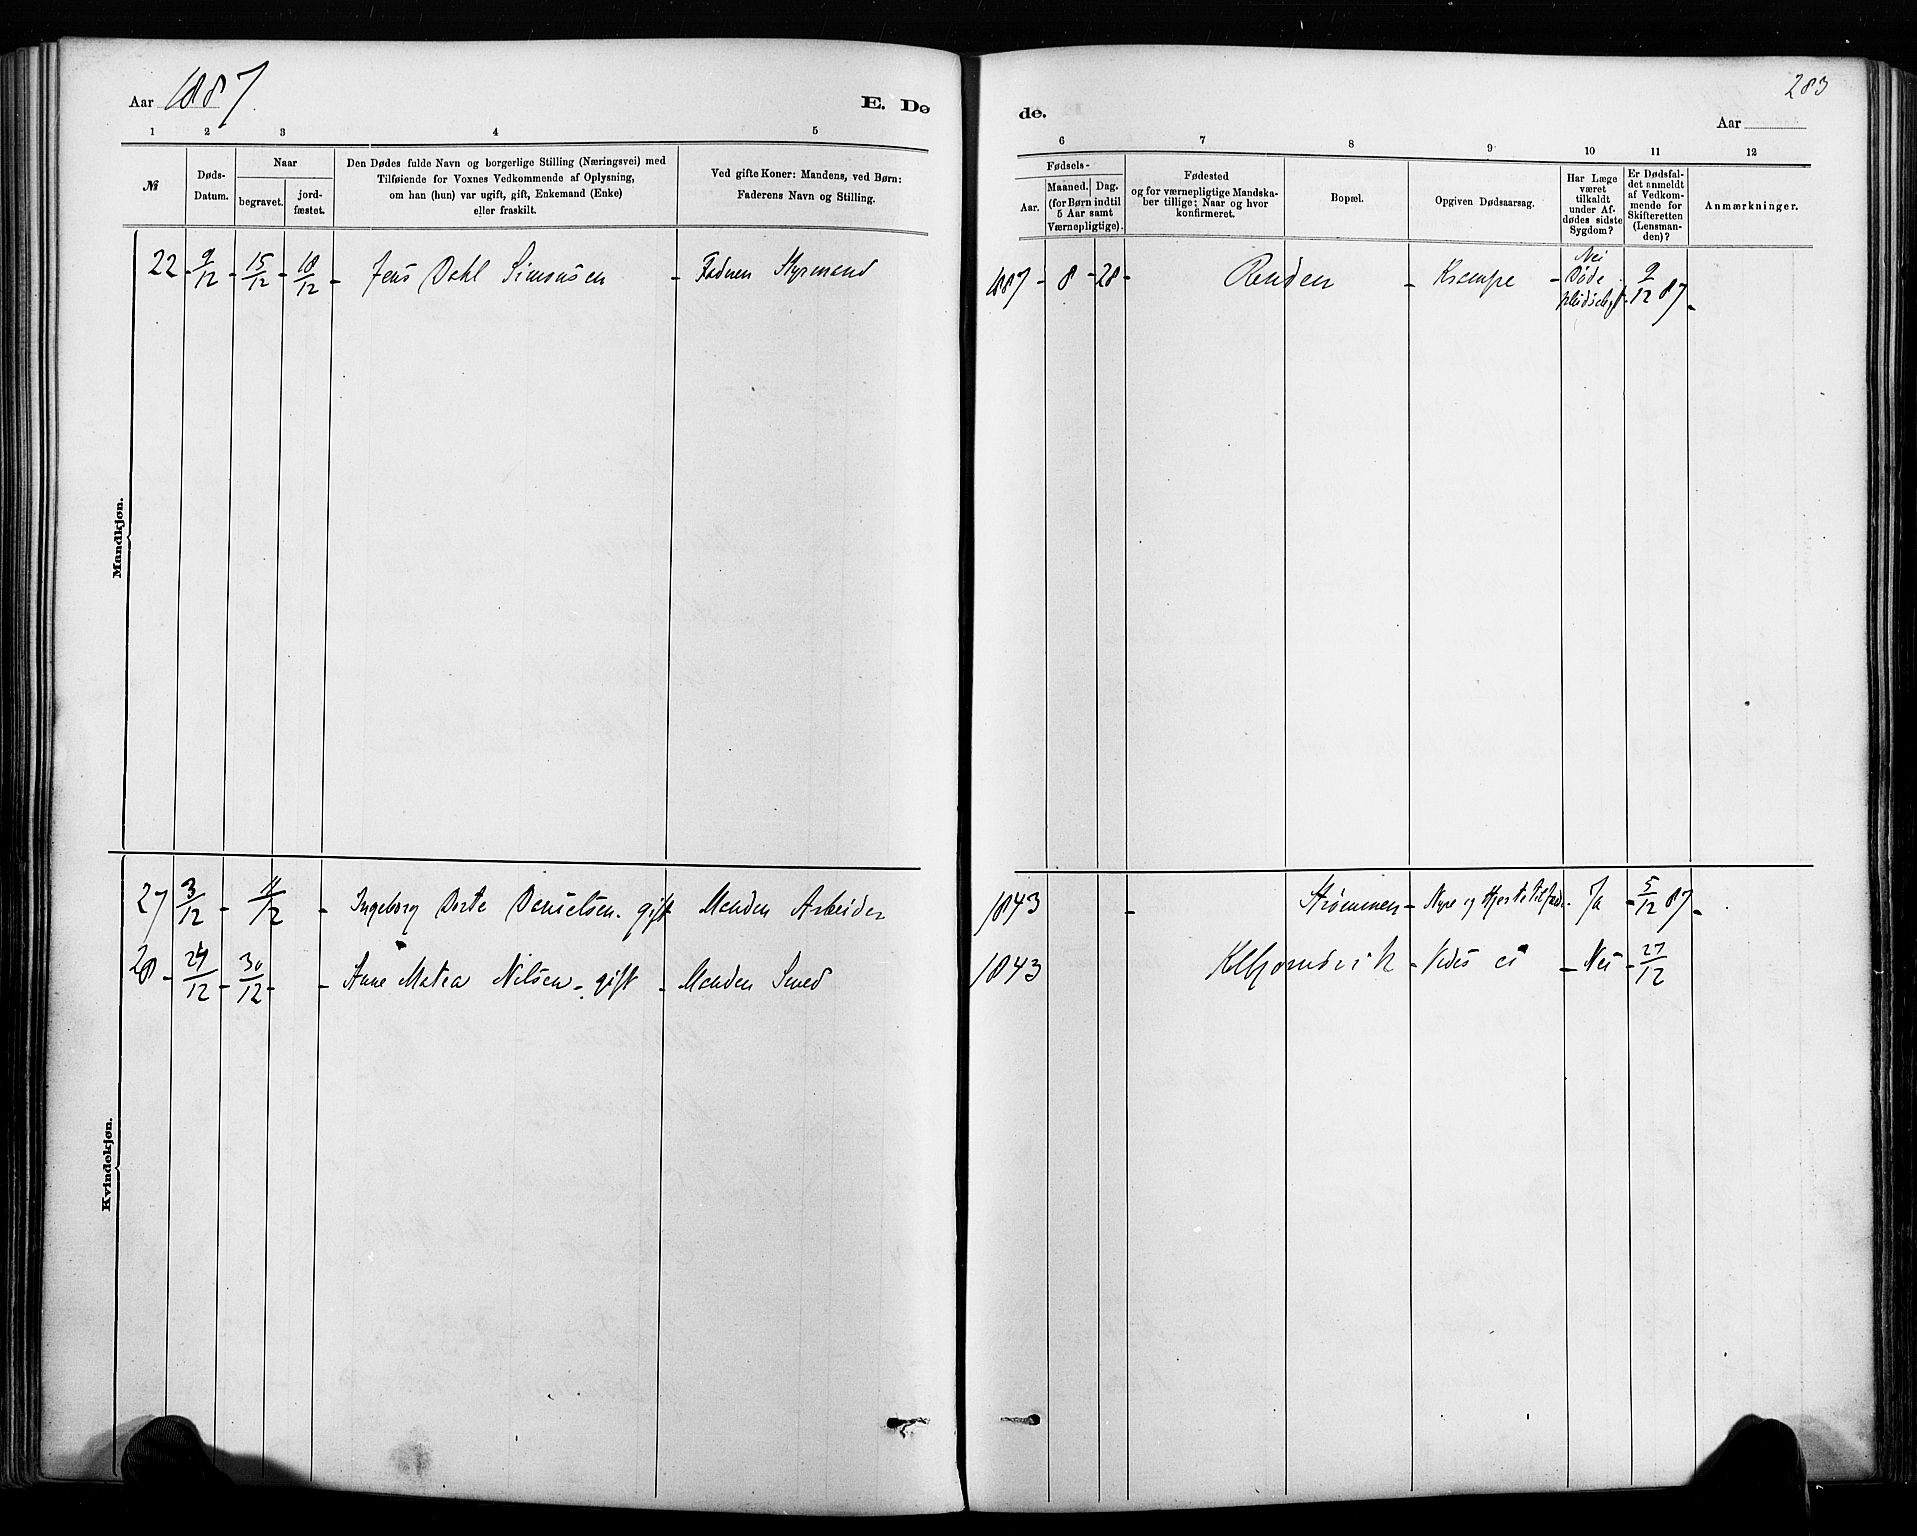 Aar 1887.
E. Dø
de.
283
Aar
1 2 3 4 5
6 7 8 9 10 11 12
№
Døds-
Datum.
Naar
begravet.
jord-
fæstet.
Den Dødes fulde Navn og borgerlige Stilling (Næringsvei) med
Tilføiende for Voxnes Vedkommende af Oplysning,
om han (hun) var ugift, gift, Enkemand (Enke)
eller fraskilt.
Ved gifte Koner: Mandens, ved Børn:
Faderens Navn og Stilling.
Fødsels-
Aar.
Maaned. Dag.
(for Børn indtil
5 Aar samt
Værnepligtige).
Fødested
og for værnepligtige Mandska-
ber tillige: Naar og hvor
konfirmeret.
Bopæl.
Opgiven Dødsaarsag.
Har Læge
været
tilkaldt
under Af-
dødes sidste
Sygdom?
Er Dødsfal-
det anmeldt
af Vedkom-
mende for
Skifteretten
(Lensman-
den)?
Anmærkninger.
Mandkjøn.
22 - 9/12 - 15/12 - 18/12 - Jens Dahl Simonsen - Faderen Styrmand
1887 - 8 - 28 - - Krampe - Nei Døde 9/12 87 -
Kvindekjøn.
27 3/12 - 11/12 - Ingeborg Dorte Danielsen. gift Manden Arbeider
1843 - Strømmen - Nyre og Hjerte - Ja - 5/12 87 -
28 - 24/12 - 30/12 - - Anne Matea Nilsen - gift - Manden Smed
1843 - Vides ei - Nei - 27/12